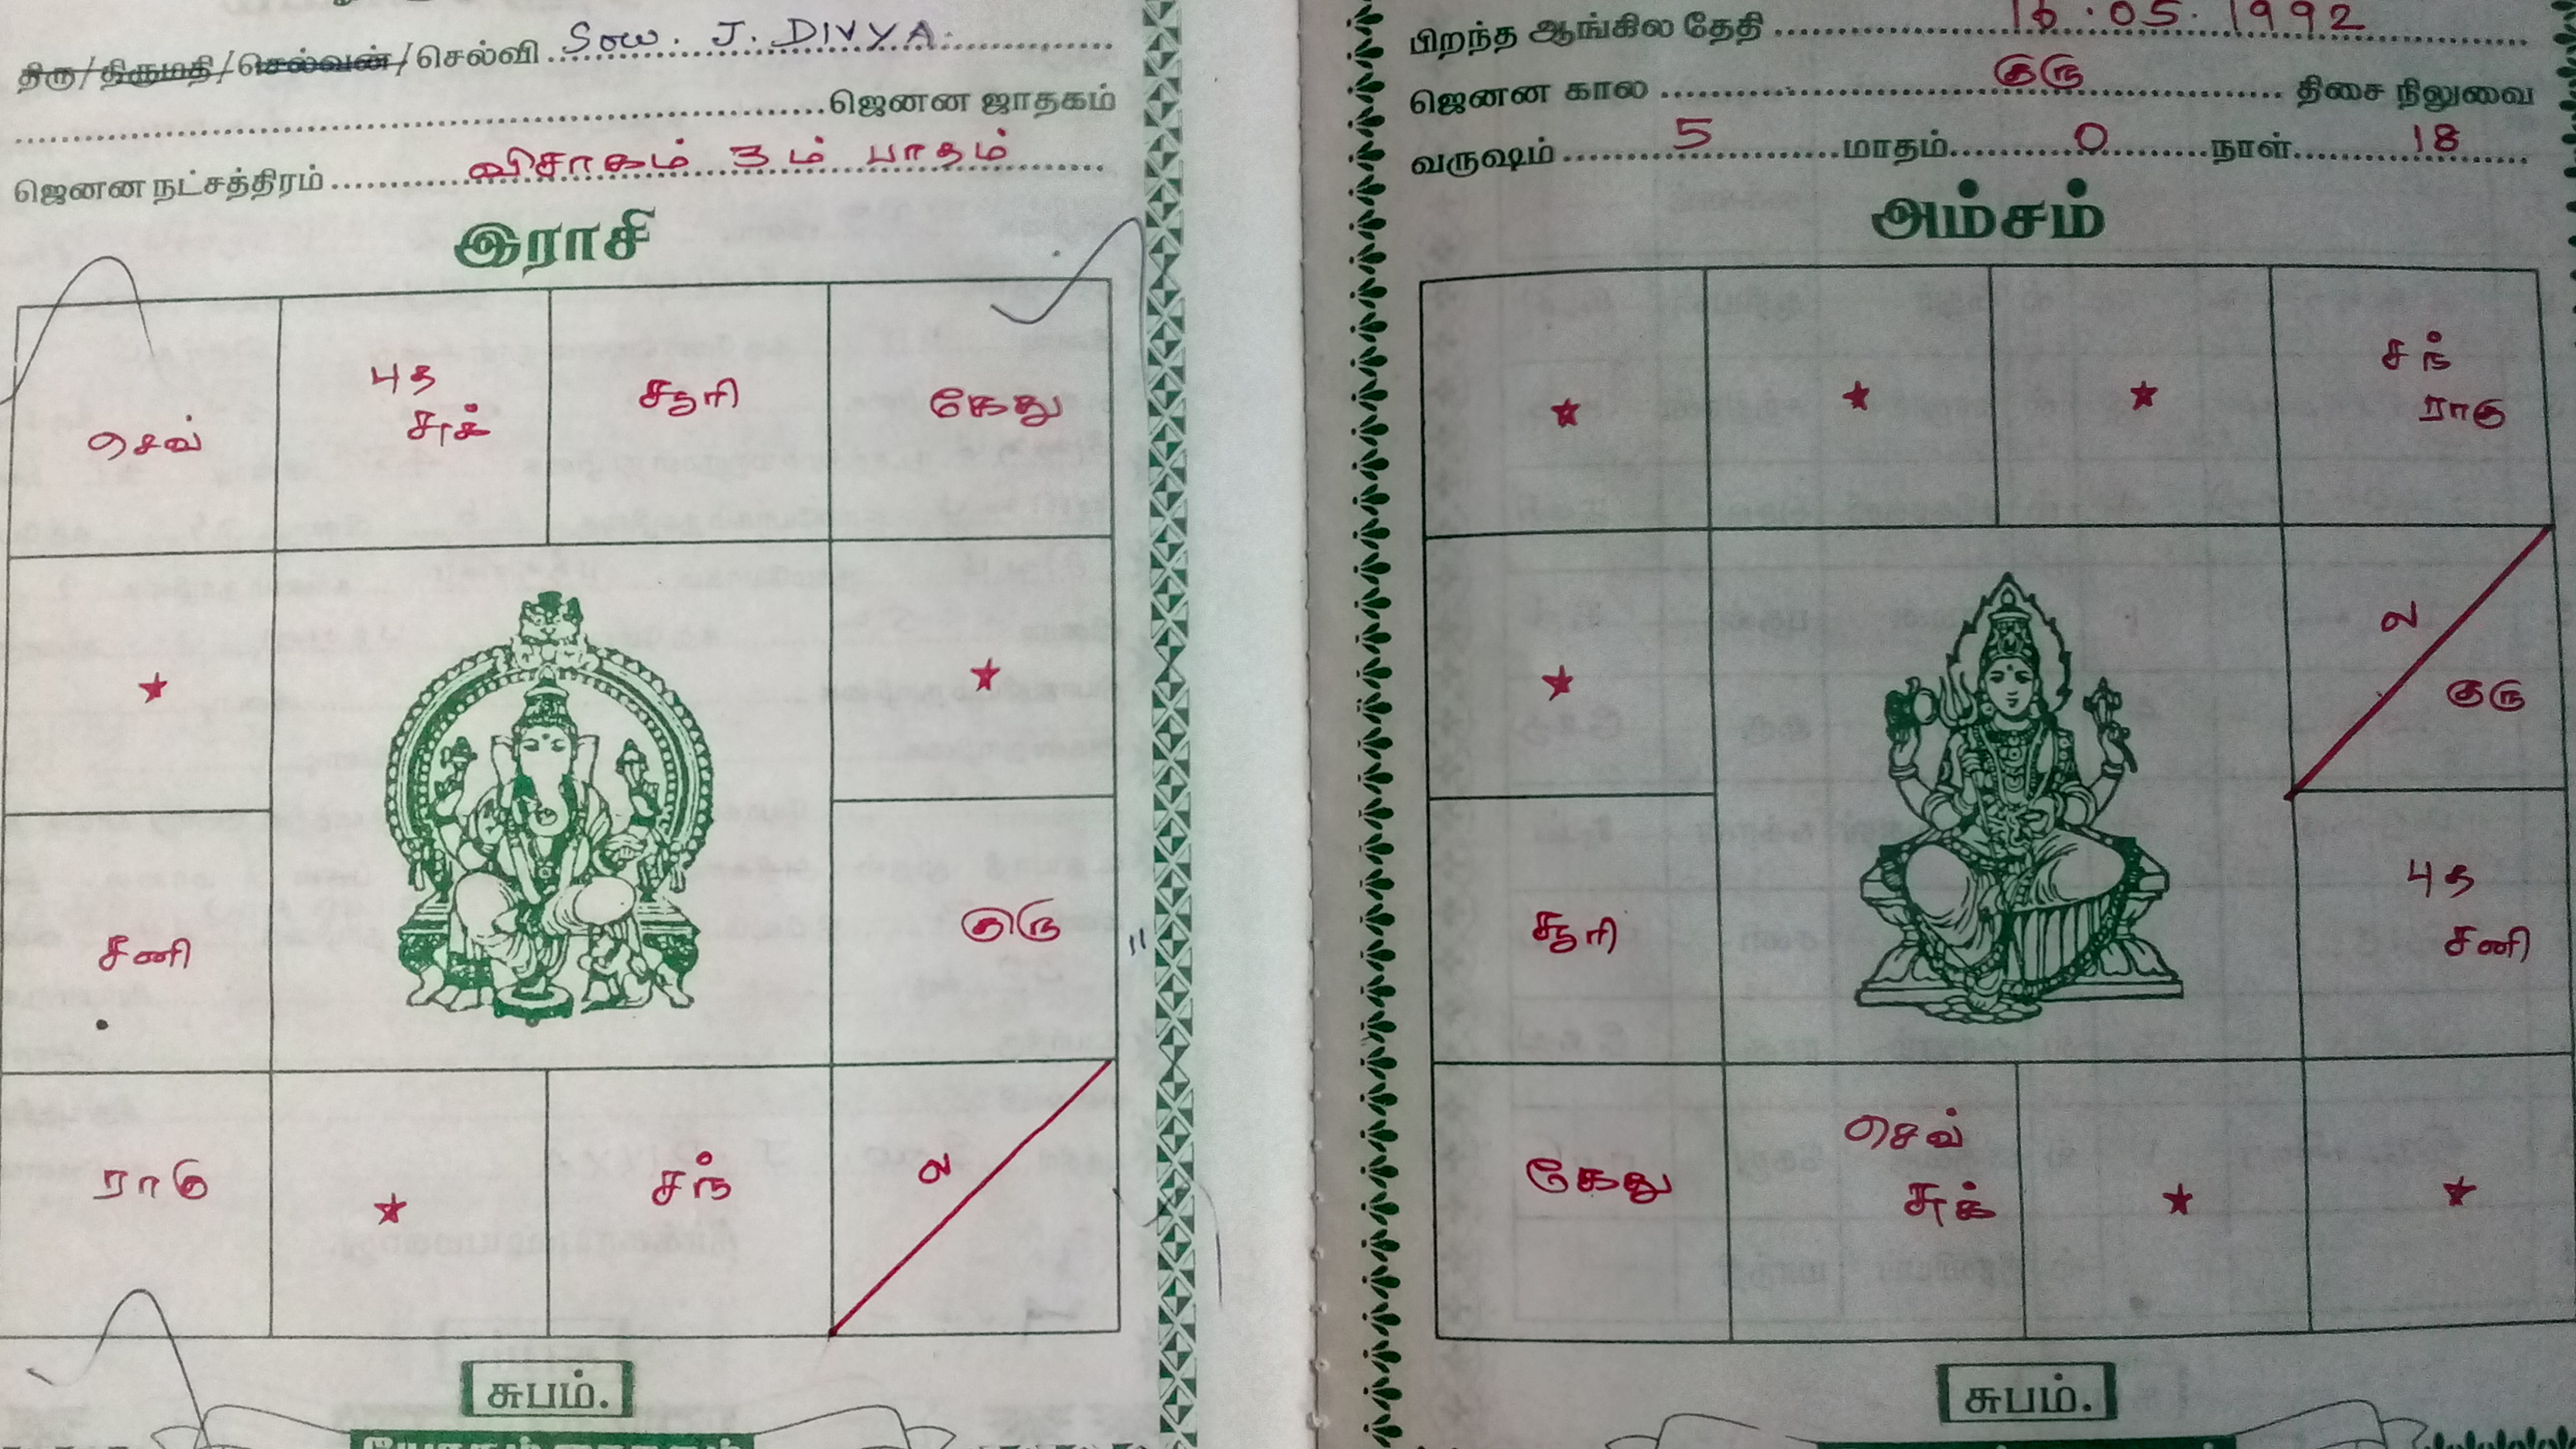 திரு/திருமதி/செல்வன்/செல்வி Sow. J. DIVYA.
ஜெனன ஜாதகம்
ஜெனன நட்சத்திரம் விசாகம் 3ம் பாதம்
இராசி
செவ்
புத
சுக்
சூரி
கேது
சனி
குரு
ராகு
சந்
ல
சுபம்.
பிறந்த ஆங்கில தேதி 16.05.1992
ஜெனன கால குரு திசை நிலுவை
வருஷம் 5 மாதம் 0 நாள் 18
அம்சம்
சந்
ராகு
ல
குரு
சூரி
புத
சனி
கேது
செவ்
சுக்
சுபம்.